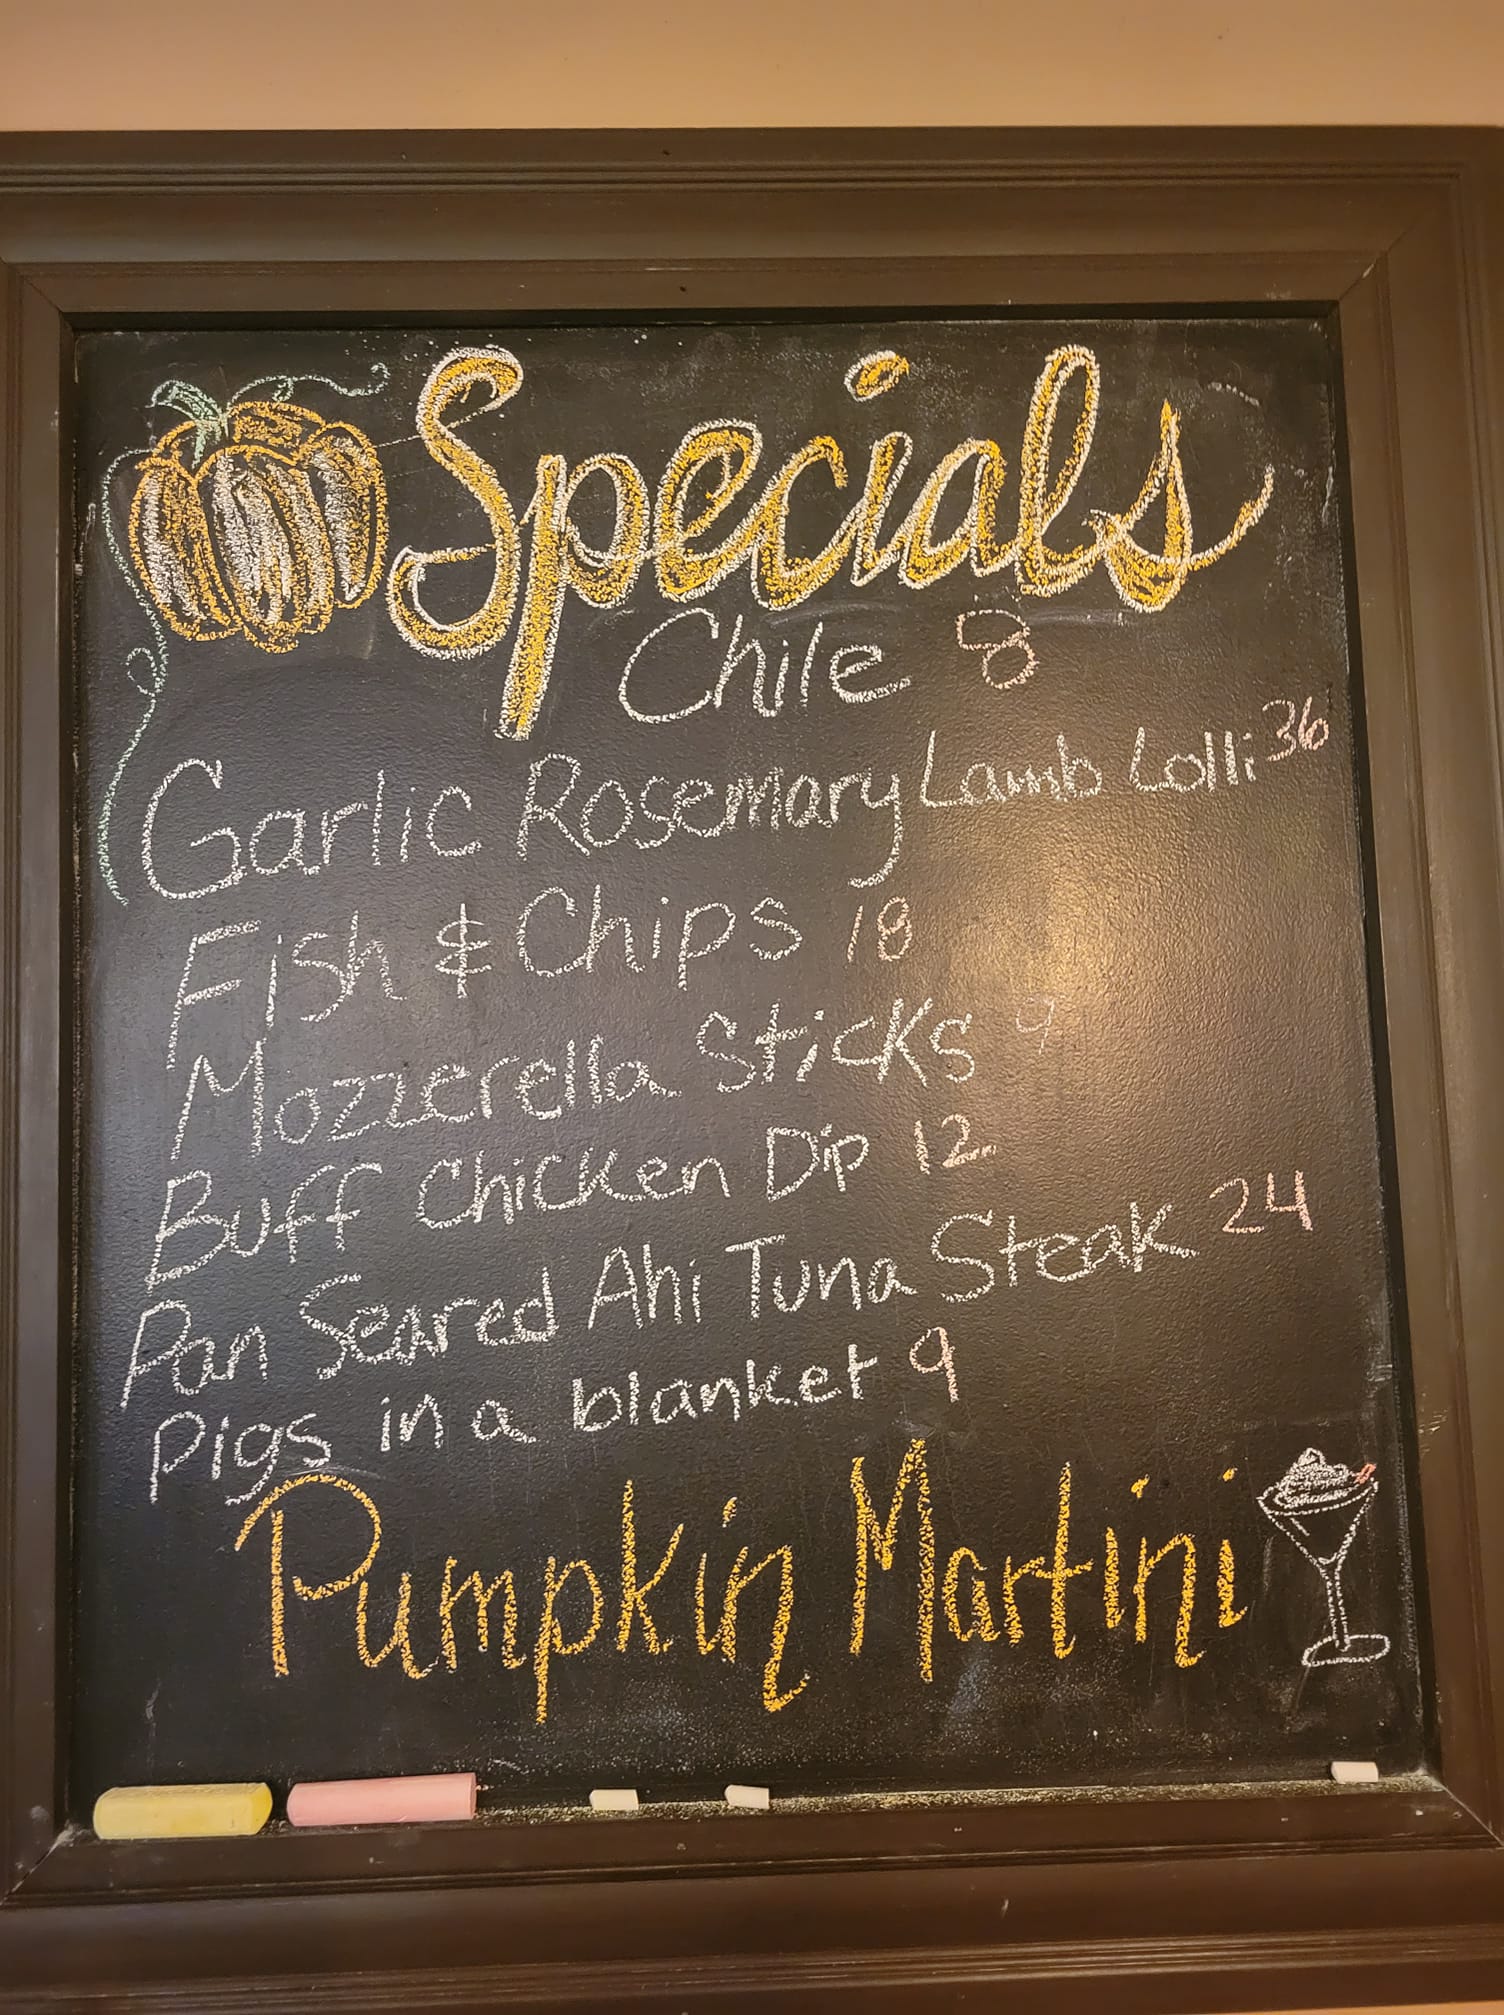 Specials
Chile 8
Garlic Rosemary Lamb Lolli 36
Fish & Chips 18
Mozzerella Sticks 9
Buff Chicken Dip 12
Pan Seared Ahi Tuna Steak 24
Pigs in a blanket 9
Pumpkin Martini